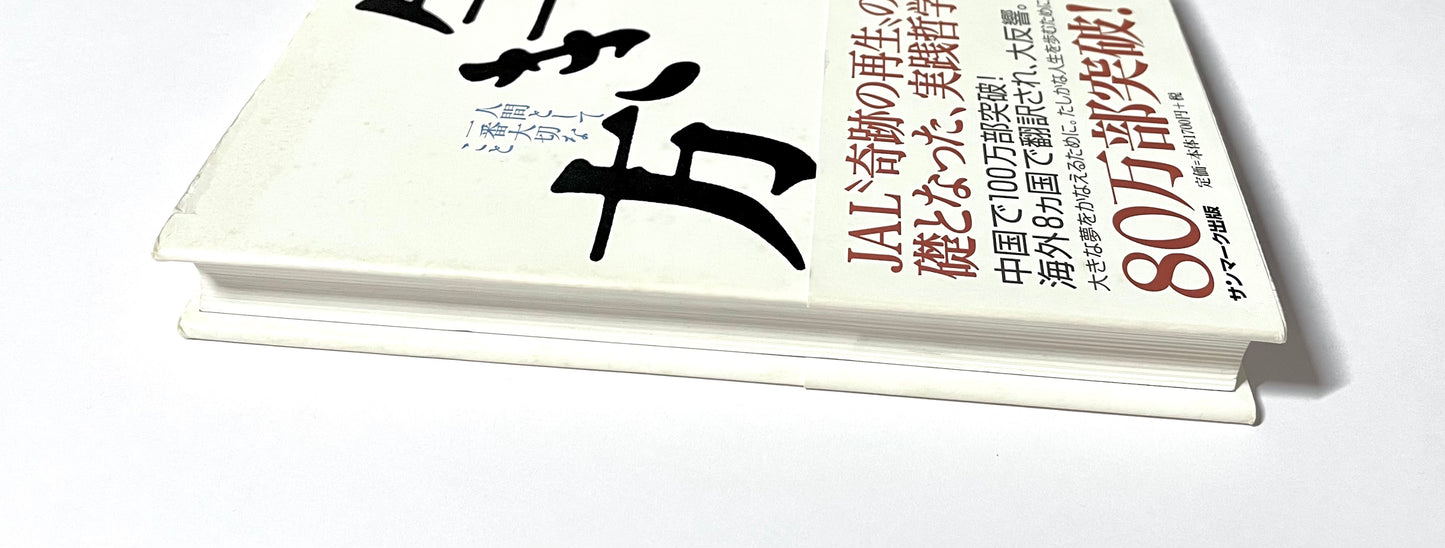 き方
人間として
一番大切な
こと
JAL〝奇跡の再生〟の
礎となった、実践哲学
中国で100万部突破!
海外8カ国で翻訳され、大反響。
大きな夢をかなえるために。たしかな人生を歩むために
80万部突破!
定価=本体1700円+税
サンマーク出版